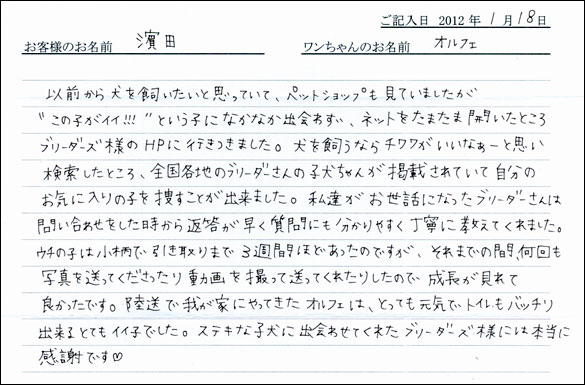 ご記入日 2012年 1月 18日
お客様のお名前 濱田 ワンちゃんのお名前 オルフェ
以前から犬を飼いたいと思っていて、ペットショップも見ていましたが
"この子がイイ!!!"という子になかなか出会わず、ネットをたまたま開いたところ
ブリーダーズ様のHPに行きつきました。犬を飼うならチワワがいいなぁーと思い
検索したところ、全国各地のブリーダーさんの子犬ちゃんが掲載されていて自分の
お気に入りの子を捜すことが出来ました。私達がお世話になったブリーダーさんは
問い合わせをした時から返答が早く質問にも分かりやすく丁寧に教えてくれました。
ウチの子は小柄で引き取りまで3週間ほどあったのですが、それまでの間、何回も
写真を送ってくださったり動画を撮って送ってくれたりしたので成長が見れて
良かったです。陸送で我が家にやってきたオルフェは、とっても元気でトイレもバッチリ
出来るとてもイイ子でした。ステキな子犬に出会わせてくれたブリーダーズ様には本当に
感謝です♡